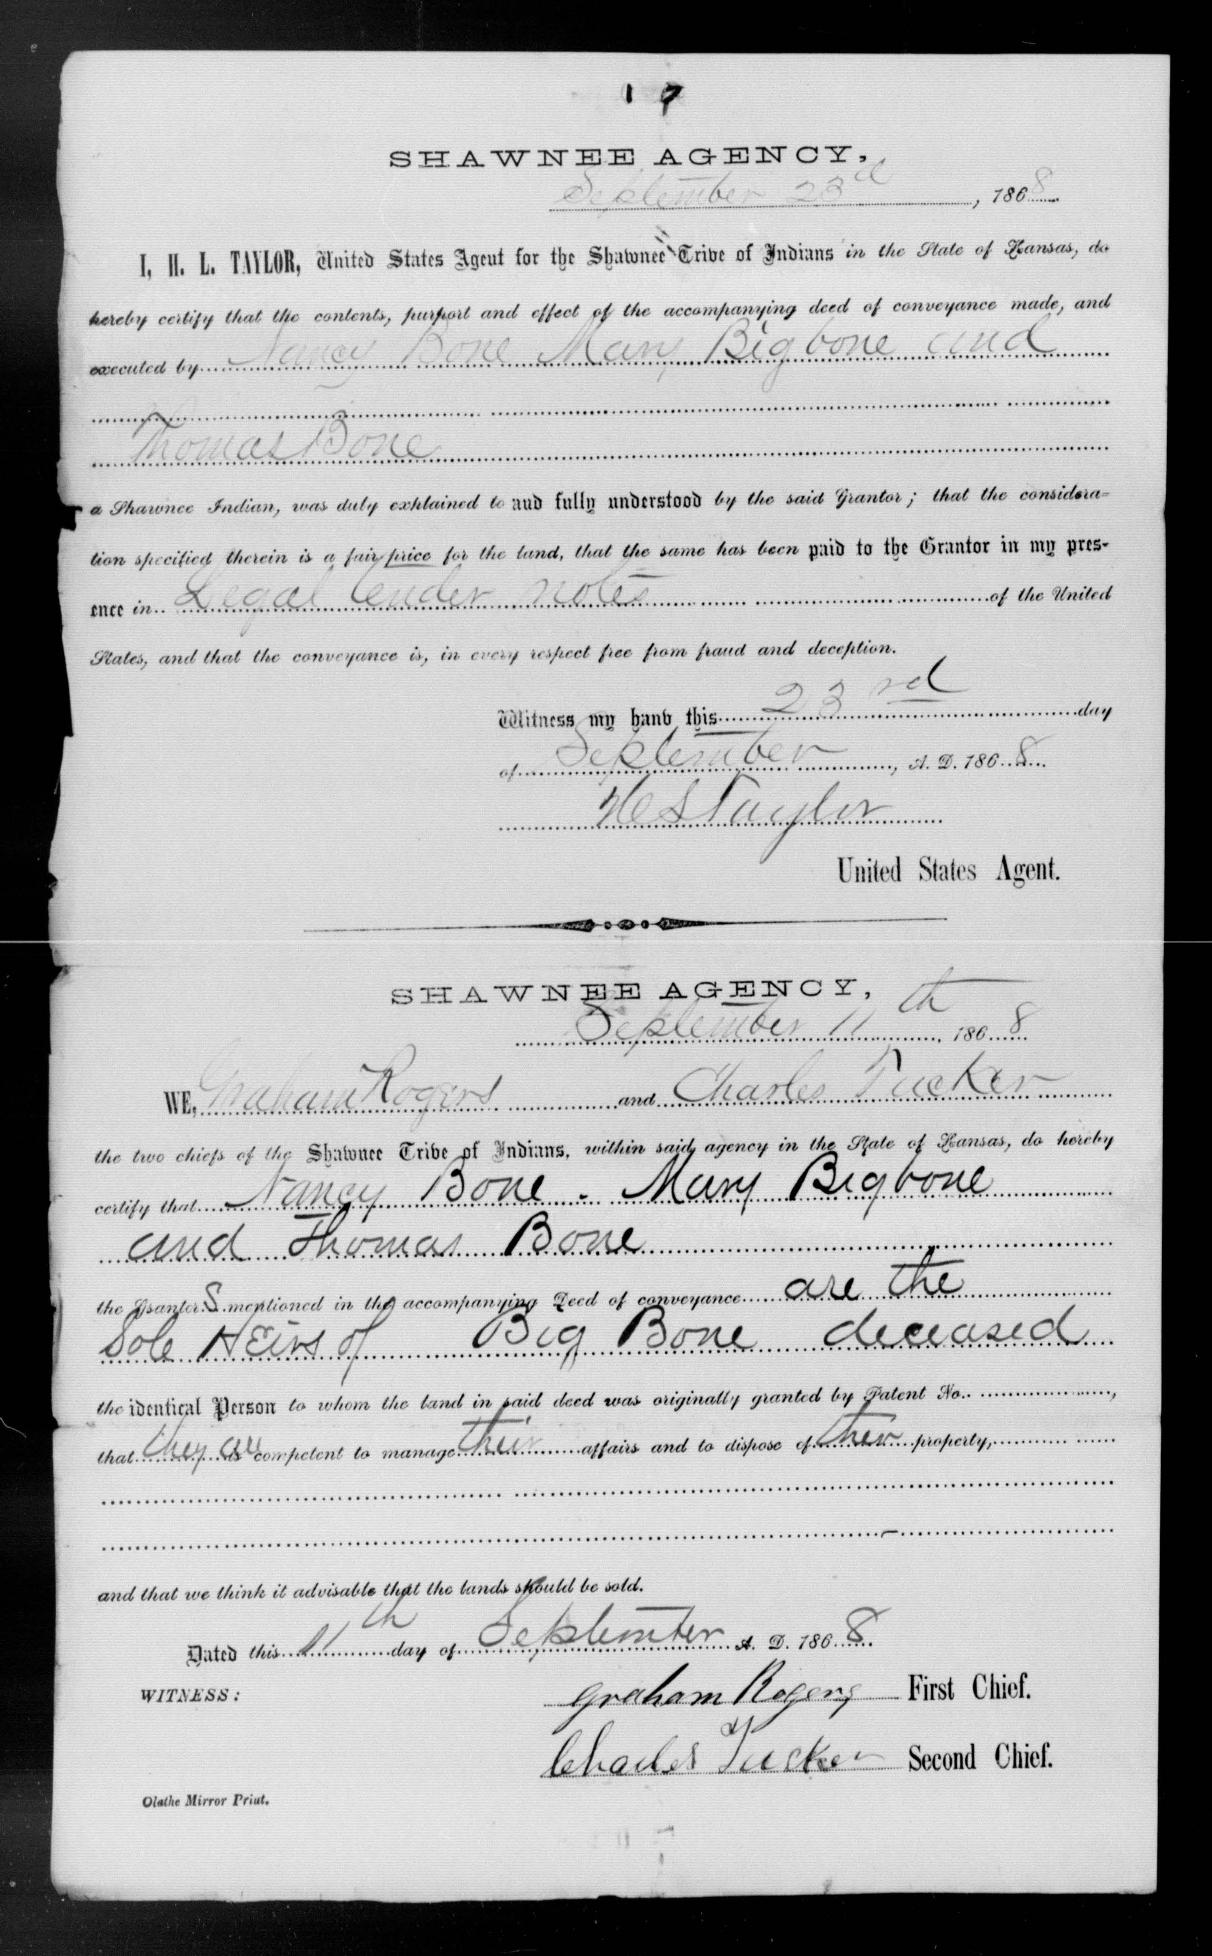 1 7
SHAWNEE AGENCY,
September 23rd, 1868
I, H. L. TAYLOR, United States Agent for the Shawnee Tribe of Indians in the State of Kansas, do
hereby certify that the contents, purport and effect of the accompanying deed of conveyance made, and
executed by Nancy Bone Mary Big bone and
Thomas Bone
a Shawnee Indian, was duly explained to and fully understood by the said Grantor; that the considera-
tion specified therein is a fair price for the land, that the same has been paid to the Grantor in my pres-
ence in Legal tender notes of the United
States, and that the conveyance is, in every respect free from fraud and deception.
Witness my hand this 23rd day
of September, A. D. 1868
H L Taylor
United States Agent.
SHAWNEE AGENCY,
September 11th, 1868
WE, Graham Rogers and Charles Tucker
the two chiefs of the Shawnee Tribe of Indians, within said agency in the State of Kansas, do hereby
certify that Nancy Bone. Mary Bigbone
and Thomas Bone
the GrantorS mentioned in the accompanying Deed of conveyance are the
Sole HEirs of Big Bone deceased
the identical Person to whom the land in said deed was originally granted by Patent No.,
that they are competent to manage their affairs and to dispose of their property,
and that we think it advisable that the lands should be sold.
Dated this 11th day of September A. D. 1868
WITNESS: Graham Rogers First Chief.
Charles Tucker Second Chief.
Olathe Mirror Print.